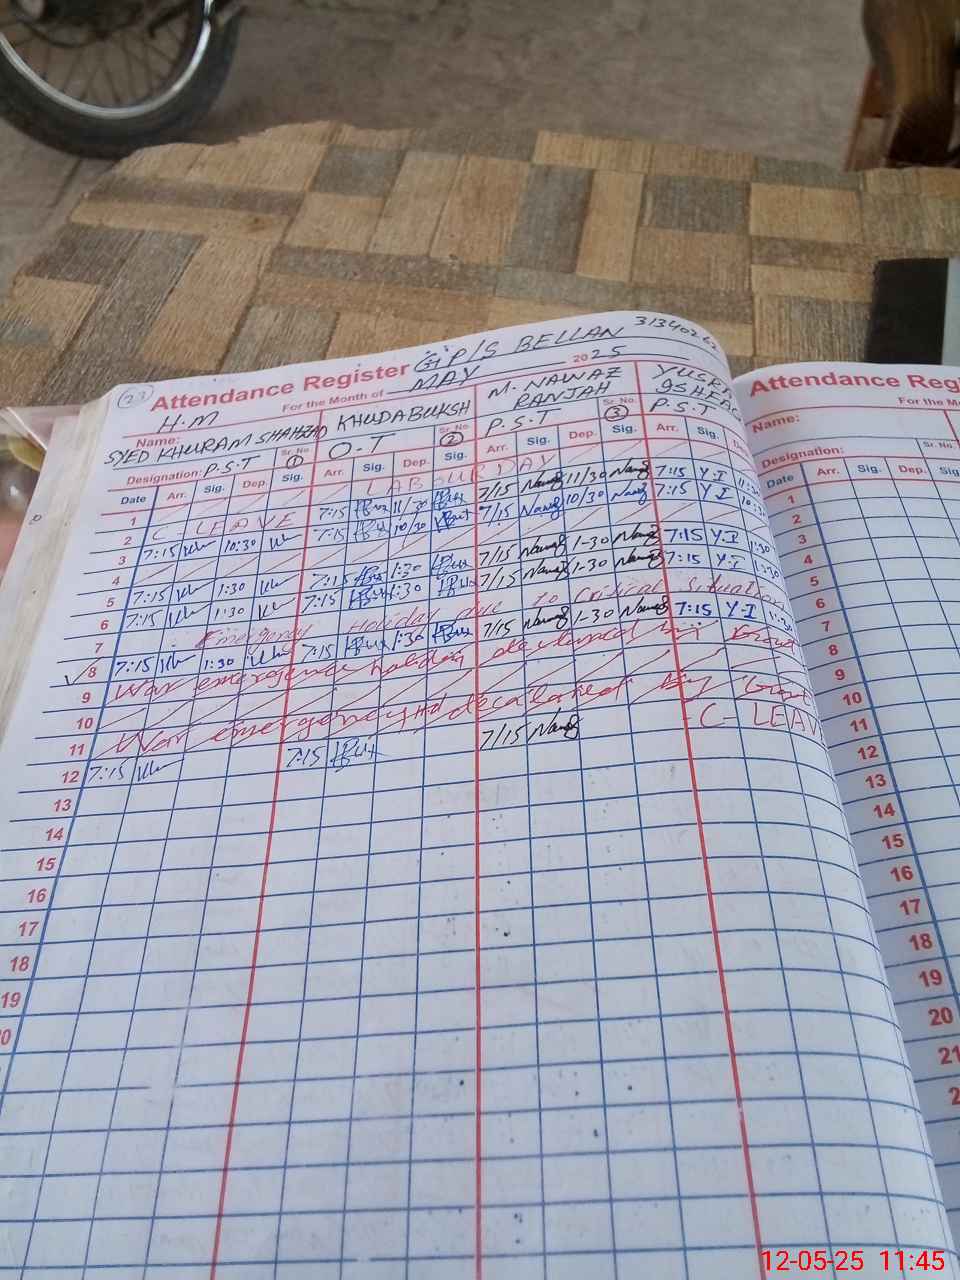 23 Attendance Register G P/S BELLAN 3134026
For the Month of MAY 2025
H.M
Name: SYED KHURAM SHAHZAD KHUDABUKSH M. NAWAZ RANJAH
Designation: P.S.T Sr. No. 1 O.T Sr. No. 2 P.S.T Sr. No. 3 P.S.T
Date Arr. Sig. Dep. Sig. Arr. Sig. Dep. Sig. Arr. Sig. Dep. Sig. Arr. Sig.
1 LABOUR DAY
2 C-LEAVE 7:15 11/30 7/15 Nawaz 11/30 Nawaz 7:15 Y.I
3 7:15 10:30 7:15 10/30 7/15 Nawaz 10/30 Nawaz 7:15 Y I
4
5 7:15 1:30 7:15 1:30 7/15 Nawaz 1-30 Nawaz 7:15 Y.I 1:30
6 7:15 1:30 7:15 1:30 7/15 Nawaz 1-30 Nawaz 7:15 Y.I 1:30
7 Emergency Holiday due to critical situation
8 7:15 1:30 7:15 1:30 7/15 Nawaz 1-30 Nawaz 7:15 Y.I
9 War emergency holiday declared by Govt
10
11 War Emergency declared by Govt
12 7:15 7:15 7/15 Nawaz C-LEAV
13
14
15
16
17
18
19
Attendance Reg
For the M
Name:
Designation: Sr. No.
Date Arr. Sig. Dep. Sig
1
2
3
4
5
6
7
8
9
10
11
12
13
14
15
16
17
18
19
20
21
12-05-25 11:45